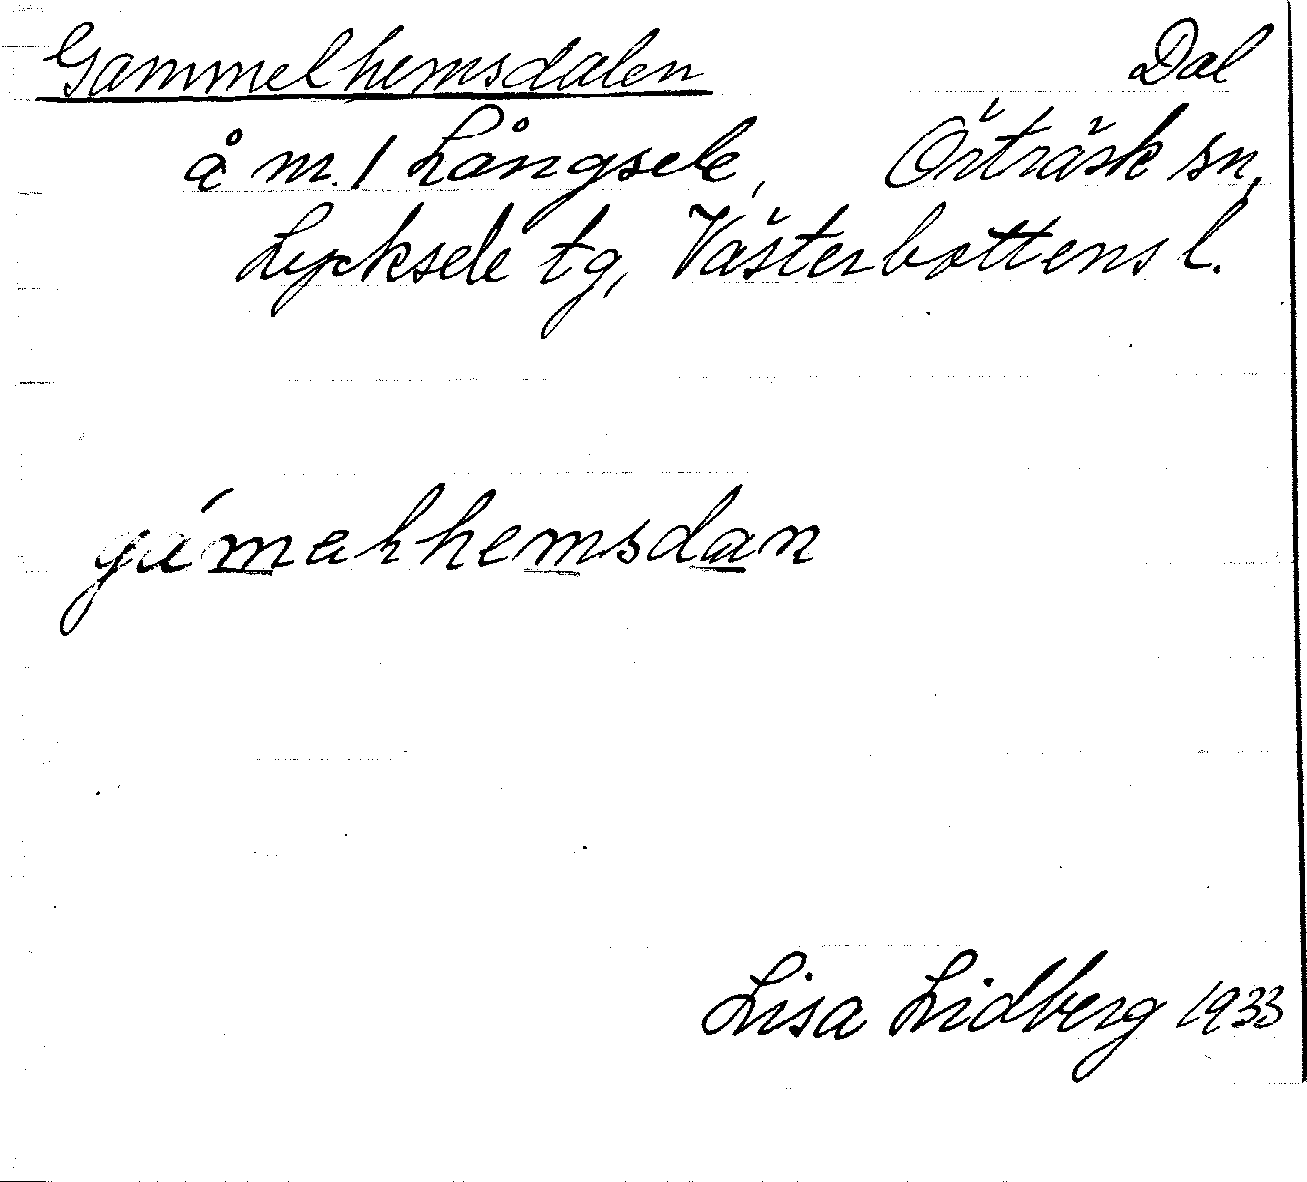 Gammelhemsdalen Dal
å m. 1 Långsele, Örträsk sn,
Lycksele tg, Västerbottens l.
gámalhemsdan
Lisa Lidberg 1933